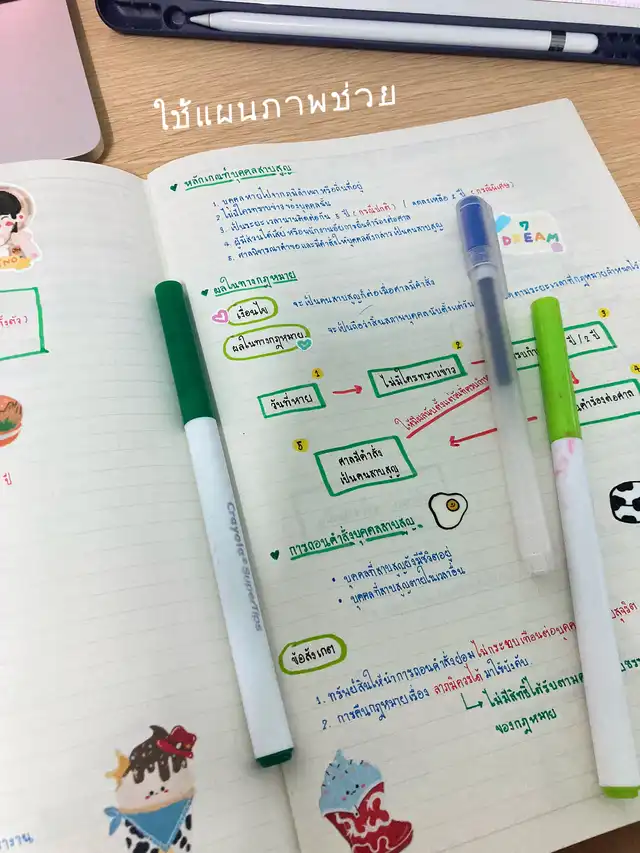 ใช้แผนภาพช่วย
หลักเกณฑ์บุคคลสาบสูญ
1. บุคคลหายไปจากภูมิลำเนา หรือถิ่นที่อยู่
2. ไม่มีใครทราบข่าวของบุคคลนั้น
3. เป็นระยะเวลานานติดต่อกัน 5 ปี (กรณีปกติ) / ลดลงเหลือ 2 ปี (กรณีพิเศษ)
4. ผู้มีส่วนได้เสีย หรือพนักงานอัยการยื่นคำร้องต่อศาล
5. ศาลพิจารณาคำขอและมีคำสั่งให้บุคคลดังกล่าวเป็นคนสาบสูญ
7 DREAM
ผลในทางกฎหมาย
เงื่อนไข
จะเป็นคนสาบสูญก็ต่อเมื่อศาลมีคำสั่ง
ผลในทางกฎหมาย
จะเป็นถือว่าสิ้นสภาพบุคคลนับตั้งแต่
ระยะเวลาที่กฎหมายกำหนดไว้
1
วันที่หาย
2
ไม่มีใครทราบข่าว
3
ปี / 2 ปี
4
คำร้องต่อศาล
5
ศาลมีคำสั่ง
เป็นคนสาบสูญ
การถอนคำสั่งบุคคลสาบสูญ
• บุคคลที่สาบสูญยังมีชีวิตอยู่
• บุคคลที่สาบสูญตายในเวลาอื่น
ข้อสังเกต
1. ทรัพย์สินให้นำการถอนคำสั่งย่อมไม่กระทบเทือนต่อ
สุจริต
2. การคืนกฎหมายเรื่อง ลาภมิควรได้ มาใช้บังคับ
ไม่มีสิทธิ์ได้รับตาม
ของกฎหมาย
Crayola SuperTips
ปี